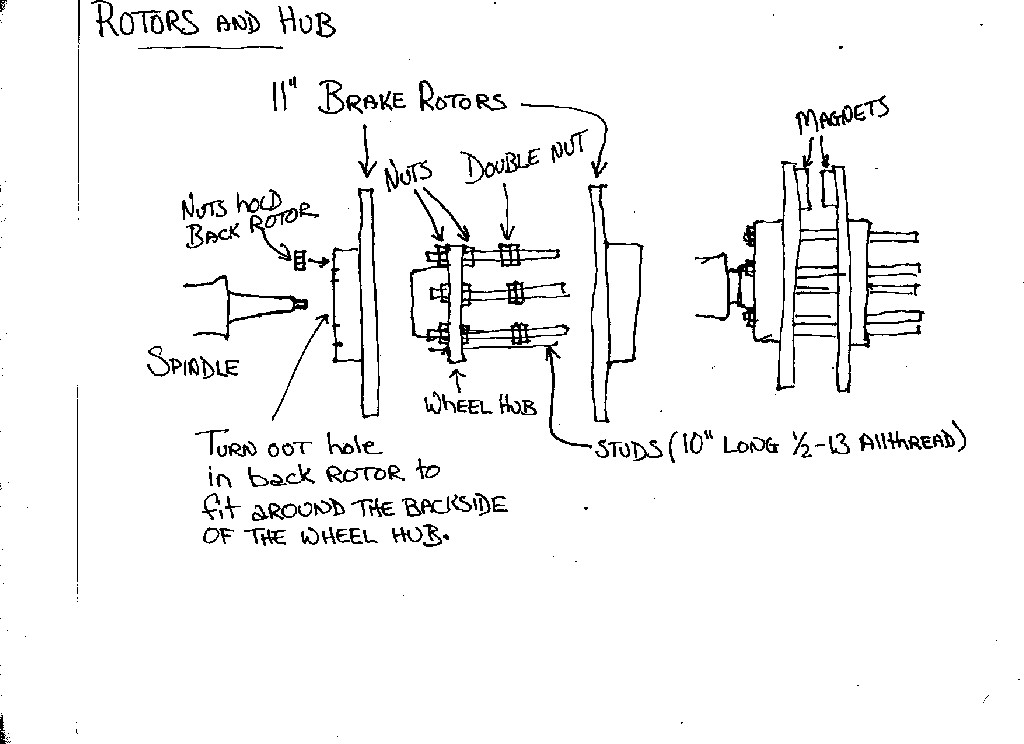 ROTORS AND HUB
11" BRAKE ROTORS
MAGNETS
NUTS
DOUBLE NUT
NUTS hOLD
BACK ROTOR
SPINDLE
WHEEL HUB
STUDS (10" LONG 1/2-13 AllthREAD)
TURN OUT hole
in back ROTOR to
fit AROUND THE BACKSIDE
OF THE WHEEL HUB.